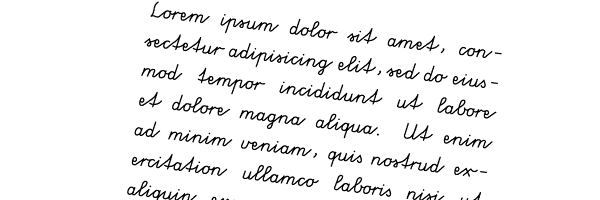 Lorem ipsum dolor sit amet, con-
sectetur adipisicing elit, sed do eius-
mod tempor incididunt ut labore
et dolore magna aliqua. Ut enim
ad minim veniam, quis nostrud ex-
ercitation ullamco laboris nisi ut
aliquip